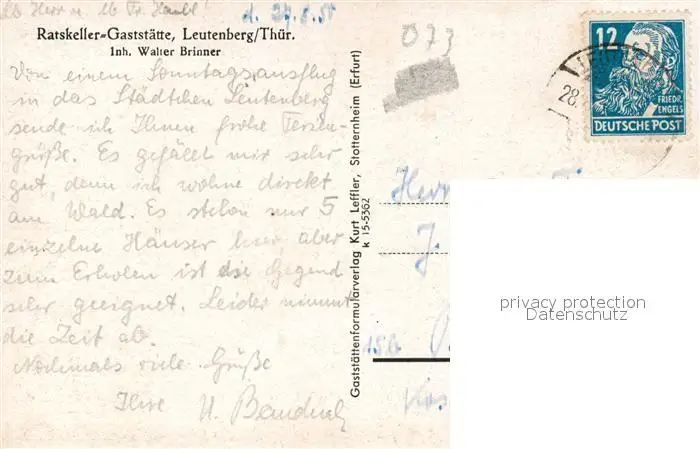 lb. Herr u. lb. Fr.
d. 27.8.51
Ratskeller-Gaststätte, Leutenberg/Thür.
Inh. Walter Brinner
Von einem Sonntagsausflug
in das Städtchen Leutenberg
sende ich Ihnen frohe Ferien-
grüße. Es gefällt mir sehr
gut, denn ich wohne direkt
am Wald. Es stehen nur 5
einzelne Häuser hier, aber
zum Erholen ist die Gegend
sehr geeignet. Leider nimmt
die Zeit ab.
Nochmals viele Grüße
Ihre
Gaststättenformularverlag Kurt Leffler, Stotternheim (Erfurt)
k 15-5362
073
12
FRIEDR.
ENGELS
DEUTSCHE POST
28.
Herr
J.
15a
privacy protection
Datenschutz